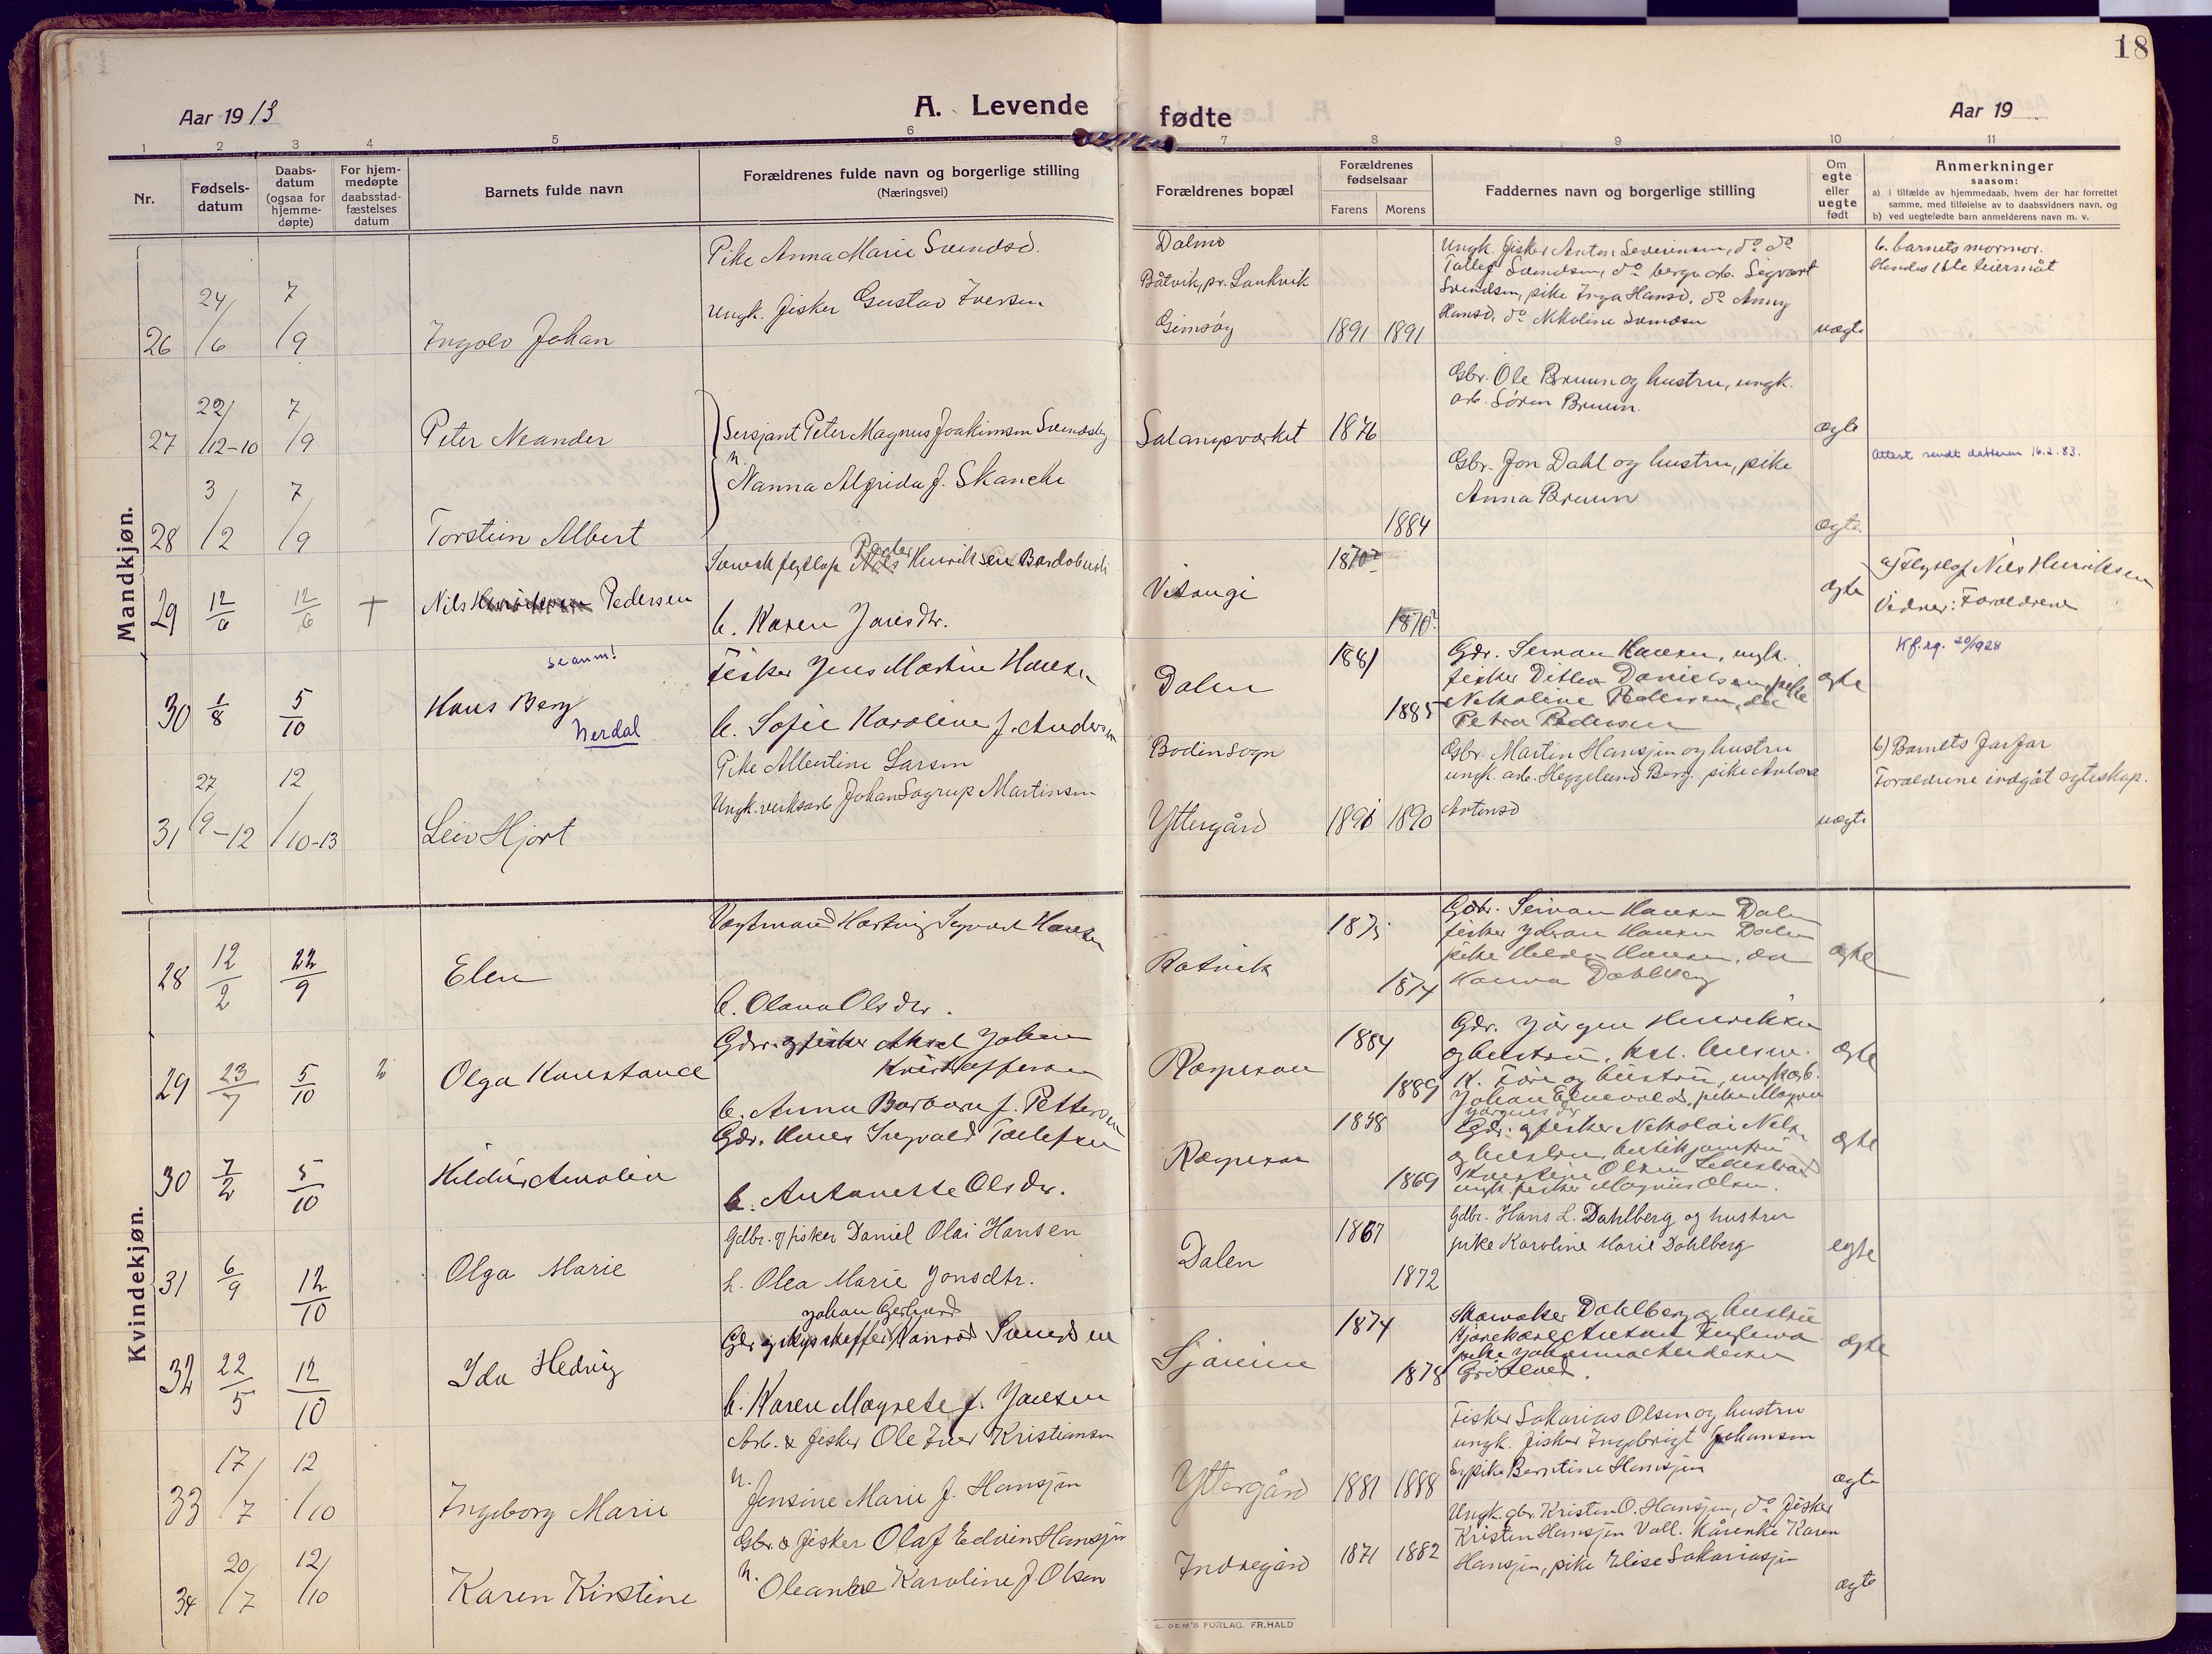 18
Aar 1913
A. Levende
fødte
Aar 19
1 2 3 4 5 6 7 8 9 10 11
Nr.
Fødsels-
datum
Daabs-
datum
(ogsaa for
hjemme-
døpte)
For hjem-
medøpte
daabsstad-
fæstelses
datum
Barnets fulde navn
Forældrenes fulde navn og borgerlige stilling
(Næringsvei)
Forældrenes bopæl
Forældrenes
fødselsaar
Farens Morens
Faddernes navn og borgerlige stilling
Om
egte
eller
uegte
født
Anmerkninger
saasom:
a) i tilfælde av hjemmedaab, hvem der har forrettet
samme, med tilføielse av to daabsvidners navn, og
b) ved uegtefødte barn anmelderens navn m. v.
Mandkjøn.
Pike Anna Marie Svendsd.
Ungk. fisker Gustav Iversen
26 24/6 7/9 Ingolv Johan
Dalmo
Båtvik, pr. Sankvik
Gimsøy 1891 1891
Ungk. fisker Anton Severinsen, do do
Tollef Svendsen, do bergv. arb. Sigvart
Svendsen, pike Inga Hansd. do Anny
Hansd. do Nikoline Svendsen
uegte
b. barnets mormor.
Hendes 1ste leiermåt
27 22/12-10 7/9 Peter Neander
Sersjant Peter Magnus Joakimsen Svendsby
h. Nanna Alfrida f. Skancke
Salangsverket 1876
Gbr. Ole Bruun og hustru, ungk.
arb. Søren Bruun.
ægte
Attest sendt datteren 16.2.83.
28 3/2 7/9 Torstein Albert
1884
Gbr. Jon Dahl og hustru, pike
Anna Bruun
ægte
29 12/6 12/6 + Nils Pedersen
Svensk flytlap Peder Henriksen
h. Karen Jonsdtr.
Vitangi 1870? 1870?
ægte
a) Flytlap Nils Henriksen
Vidner: Forældrene
30 1/8 5/10 Hans Berg
se anm!
Nerdal
Fisker Jens Martin Hansen
h. Sofie Karoline f. Andersen
Dalen 1881 1885
Gdr. Hansen, ungk.
fisker Ditlev Danielsen, pike
Nikoline Pedersen, do
Petra Pedersen
ægte
Kf. rg. 20/1928
31 27/9-12 12/10-13 Leiv Hjort
Pike Albertine Larsen
Ungk. verksarb Johan Martinsen
Bodin sogn
Yttergård 1890
Gbr. Martin Hansjen og hustru
ungk. arb. Heggelund Berg, pike Antona
Antonsd
uegte
b) Barnets farfar
Forældrene indgåt egteskap.
Kvindekjøn.
28 12/2 22/9 Elen
Vagtmand Hartvig Sigvart Hansen
h. Olava Olsdtr.
Rotvik 1875 1874
Gdbr. Hansen Dalen
fisker Johan Hansen Dalen
pike Hilda Hansen, do
Dahlberg
ægte
29 23/7 5/10 Olga Konstance
Gdr. og fisker Aksel Johan
Kristoffersen
h. Anna Barbara f. Pettersen
1884 1889
Gdr. Jørgen Henriksen
og hustru
K. Føre og hustru, ungk. arb.
Johan
ægte
30 7/2 5/10 Hildur Amalia
Gdr. Hans Ingvald Tollefsen
h. Antonette Olsdr.
1858 1869
Gdr. og fisker Nikolai Nilsen
og hustru, butikjomfru
Olsen
ungk. fisker Magnus Olsen.
ægte
31 6/9 12/10 Olga Marie
Gdbr. og fisker Daniel Olai Hansen
h. Olea Marie Jonsdtr.
Dalen 1867 1872
Gdbr. Hans L. Dahlberg og hustru
pike Karoline Marie Dahlberg
egte
32 22/5 12/10 Ida Hedvig
Johan Gerhard
Gdr. og skysskaffer Konrad Svendsen
h. Karen Magrete f. Jansen
1874 1878
Skomaker Dahlberg og hustru
pike Johanna Andersen
ægte
33 17/7 12/10 Ingeborg Marie
Arb. & fisker Ole Iver Kristiansen
h. Jensine Marie f. Hansjen
Yttergård 1881 1888
Fisker Sakarias Olsen og hustru
ungk. fisker Ingebrigt Johansen
Sypike Berntine Hansjen
ægte
34 20/7 12/10 Karen Kirstine
Gbr. & fisker Olaf Edvin Hansjen
h. Oleanne Karoline f. Olsen
Indregård 1871 1882
Ungk. gbr. Kristen O. Hansjen, do fisker
Kristen Hansjen Vall. Kårenke Karen
Hansjen, pike Elise Sakariasjen
ægte
E. SEM'S FORLAG. FR.HALD